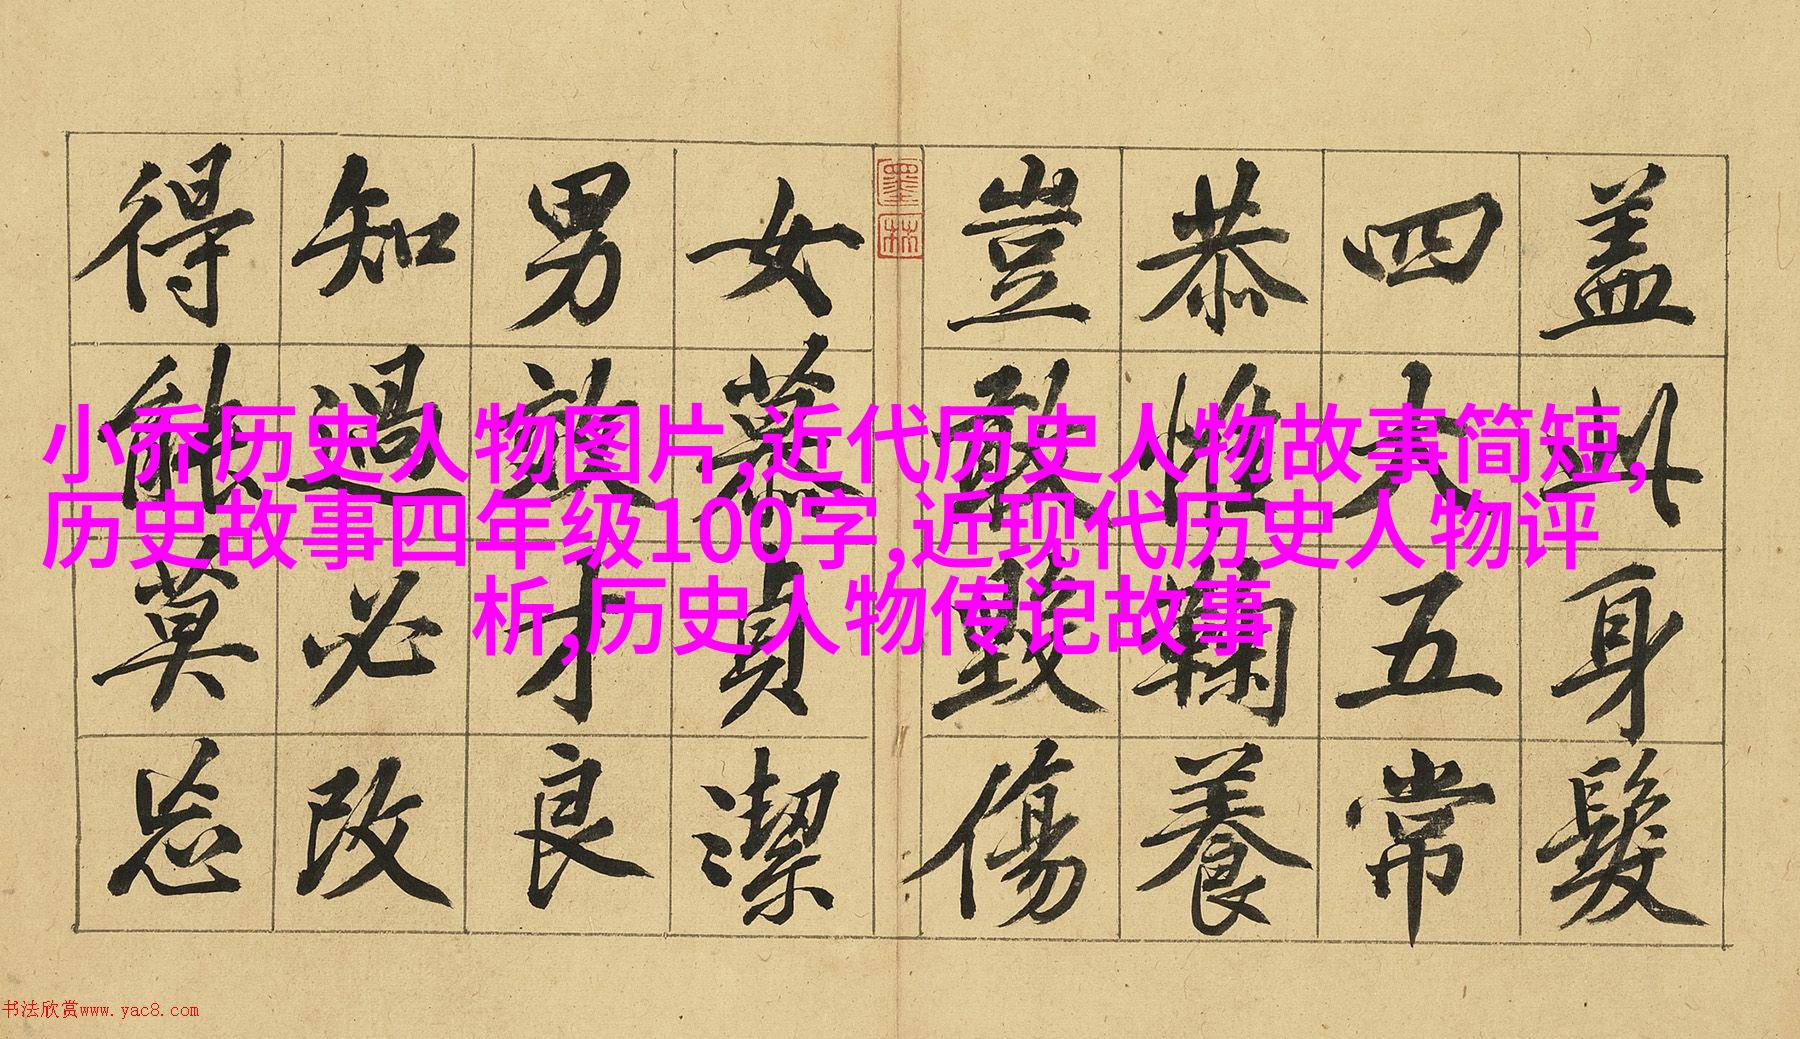 盖此身髮
四大五常
恭惟鞠養
豈敢毀傷
墨林
女慕貞潔
男效才良
知過必改
得能莫忘
小乔历史人物图片,近代历史人物故事简短,
历史故事四年级100字,近现代历史人物评
析,历史人物传记故事
书法欣赏www.yac8.com